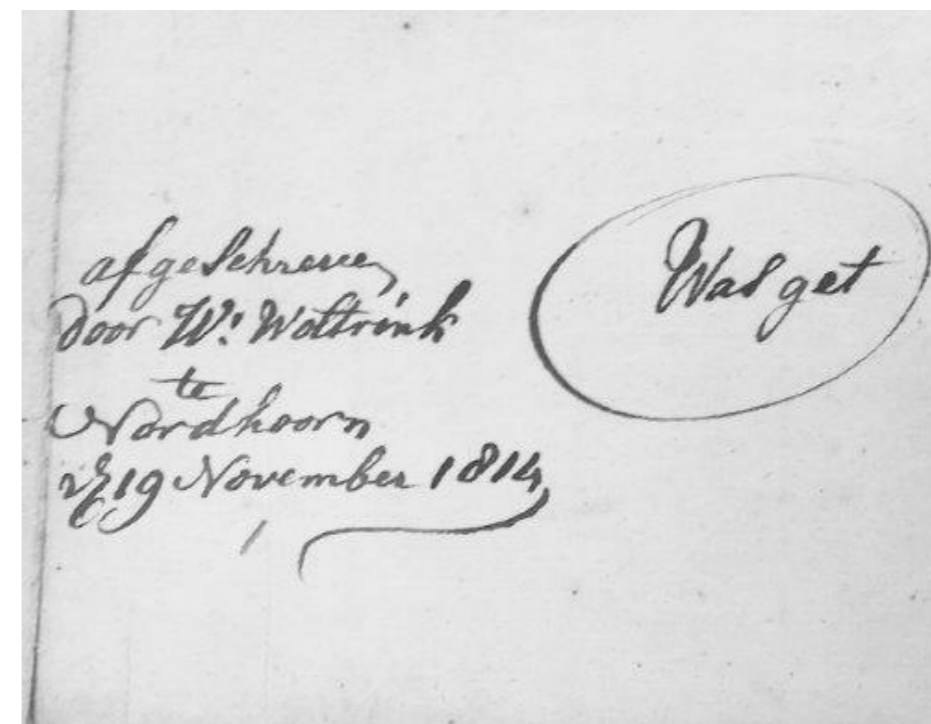 afgeschreven
door W: Woltrink
te
Nordhoorn
19 November 1814
Was get